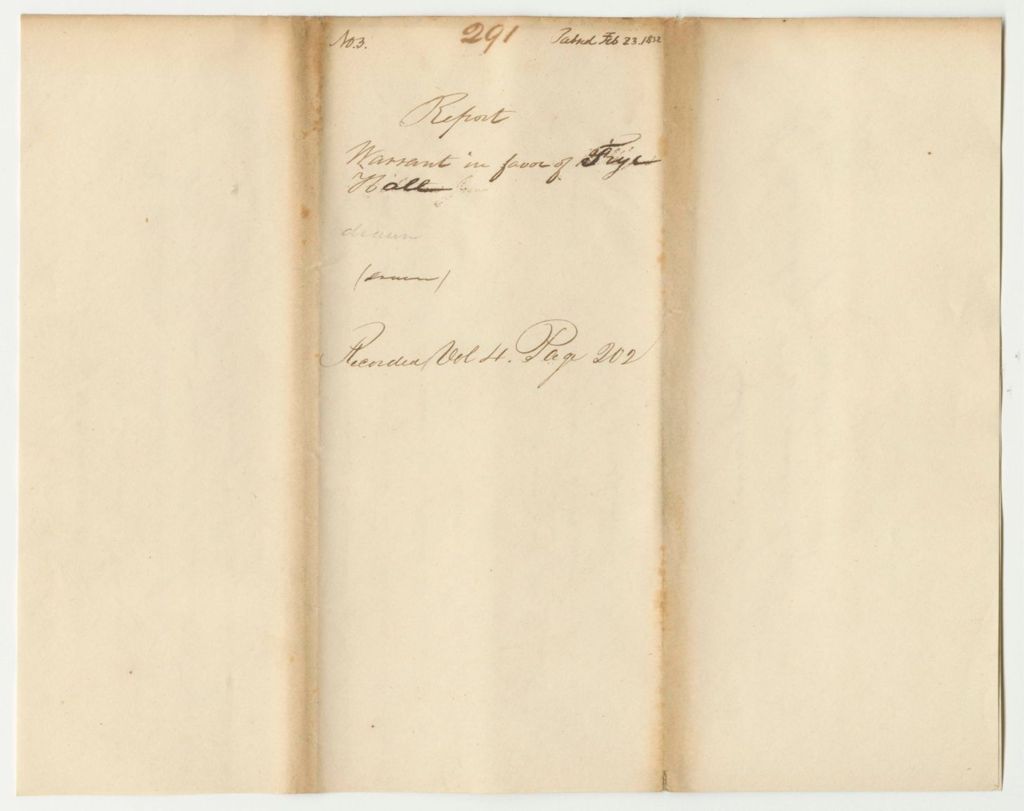 No. 3. 291 Passed Feb 23. 1832
Report
Warrant in favor of Frye
Hall
drawn
(drawn)
Recorded Vol 4. Page 202